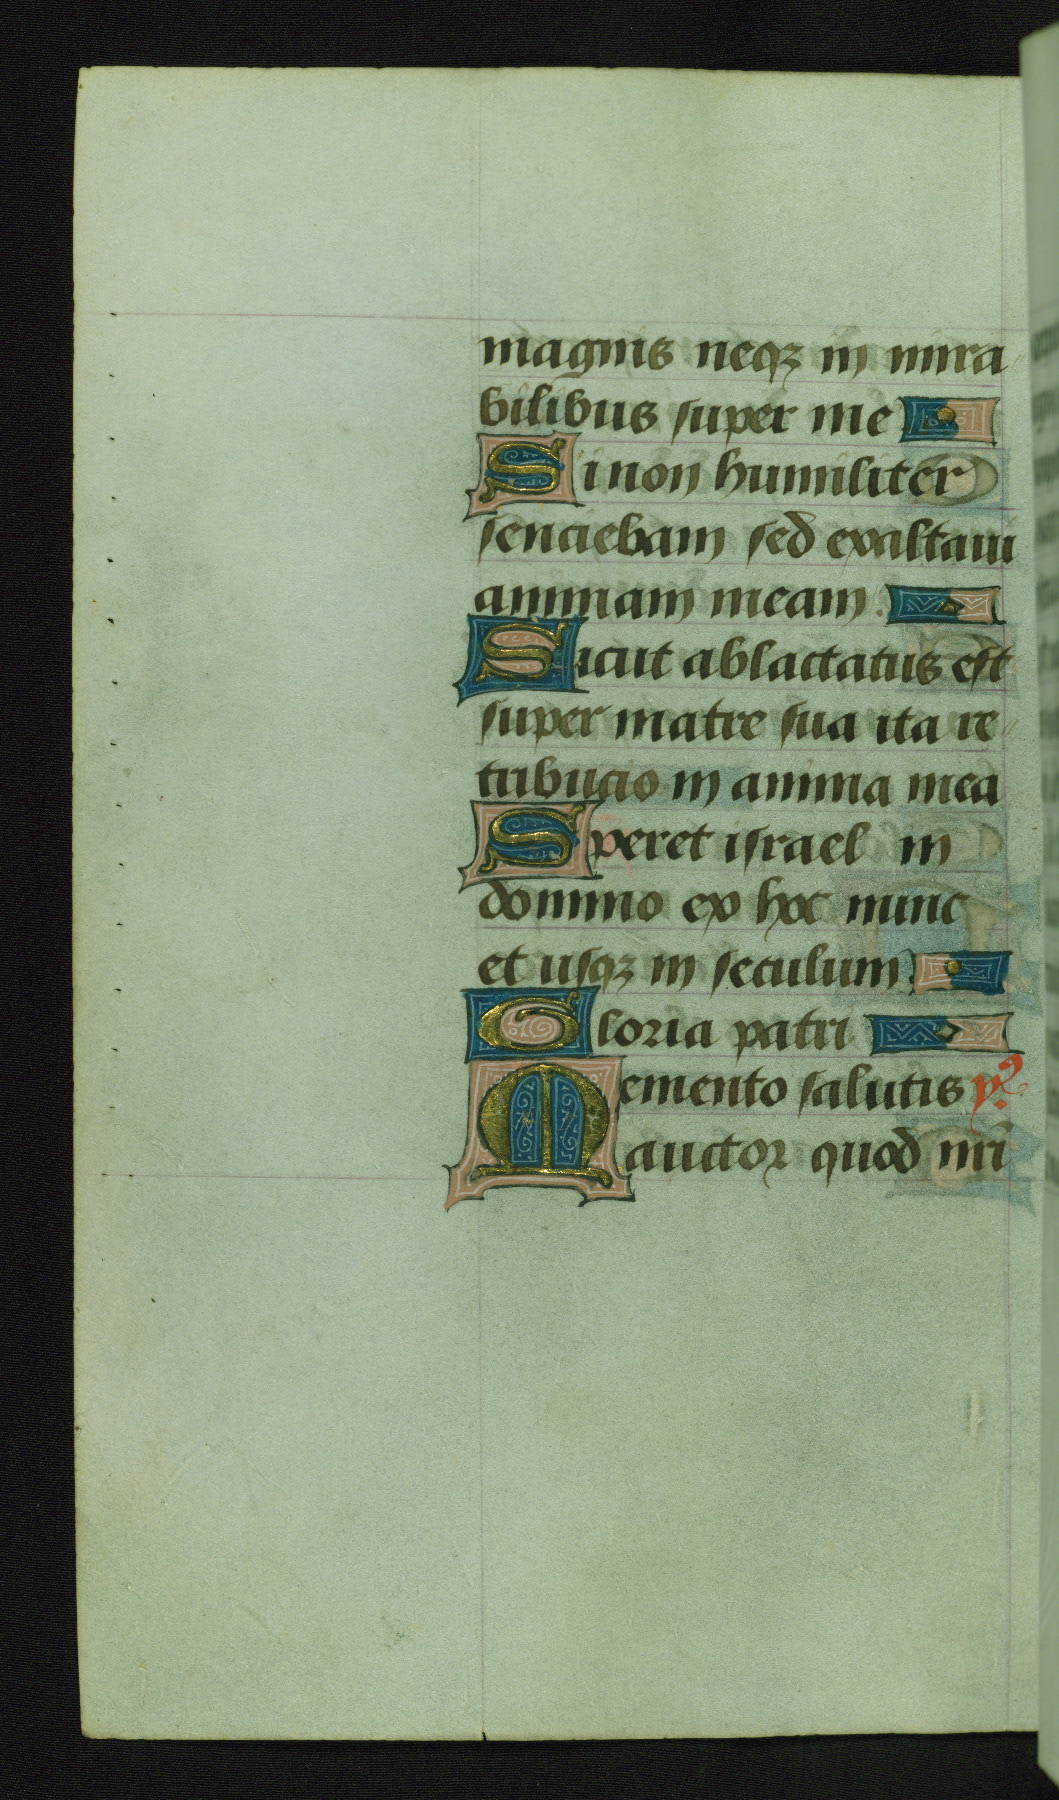 magnis neqꝫ in mira
bilibus super me
Si non humiliter
senciebam sed exaltaui
animam meam.
Sicut ablactatus est
super matre sua ita re
tribucio in anima mea
Speret israel in
domino ex hoc nunc
et usqꝫ in seculum.
Gloria patri
Memento salutis yꝰ.
auctor quod nr̄i